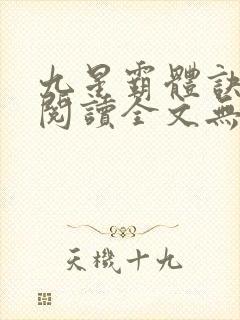 九星霸體訣
閱讀全文無
天機十九